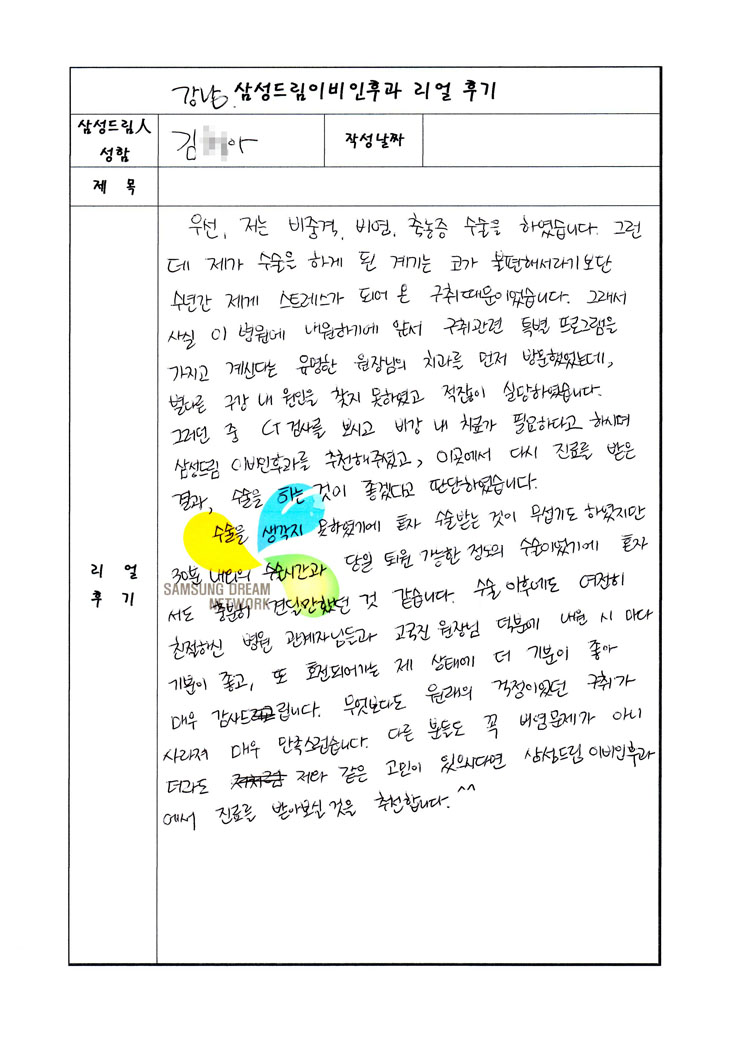 강남 삼성드림이비인후과 리얼 후기
삼성드림人 성함
김 아
작성날짜
제 목
리 얼 후 기
우선, 저는 비중격, 비염, 축농증 수술을 하였습니다. 그런
데 제가 수술을 하게 된 계기는 코가 불편해서라기보단
수년간 제게 스트레스가 되어 온 구취때문이었습니다. 그래서
사실 이 병원에 내원하기에 앞서 구취관련 특별 프로그램을
가지고 계신다는 유명한 원장님의 치과를 먼저 방문했었는데,
별다른 구강 내 원인을 찾지 못하였고 적잖이 실망하였습니다.
그러던 중 CT 검사를 보시고 비강 내 치료가 필요하다고 하시며
삼성드림 이비인후과를 추천해주셨고, 이곳에서 다시 진료를 받은
결과, 수술을 하는 것이 좋겠다고 판단하였습니다.
수술을 생각지 못하였기에 혼자 수술받는 것이 무섭기도 하였지만
30분 내외의 수술시간과 당일 퇴원 가능한 정도의 수술이었기에 혼자
서도 충분히 견딜만했던 것 같습니다. 수술 이후에도 여전히
친절하신 병원 관계자님들과 고국진 원장님 덕분에 내원 시 마다
기분이 좋고, 또 호전되어가는 제 상태에 더 기분이 좋아
매우 감사드립니다. 무엇보다도 원래의 걱정이었던 구취가
사라져 매우 만족스럽습니다. 다른 분들도 꼭 비염문제가 아니
더라도 저와 같은 고민이 있으시다면 삼성드림 이비인후과
에서 진료를 받아보실 것을 추천합니다. ^^
SAMSUNG DREAM
NETWORK